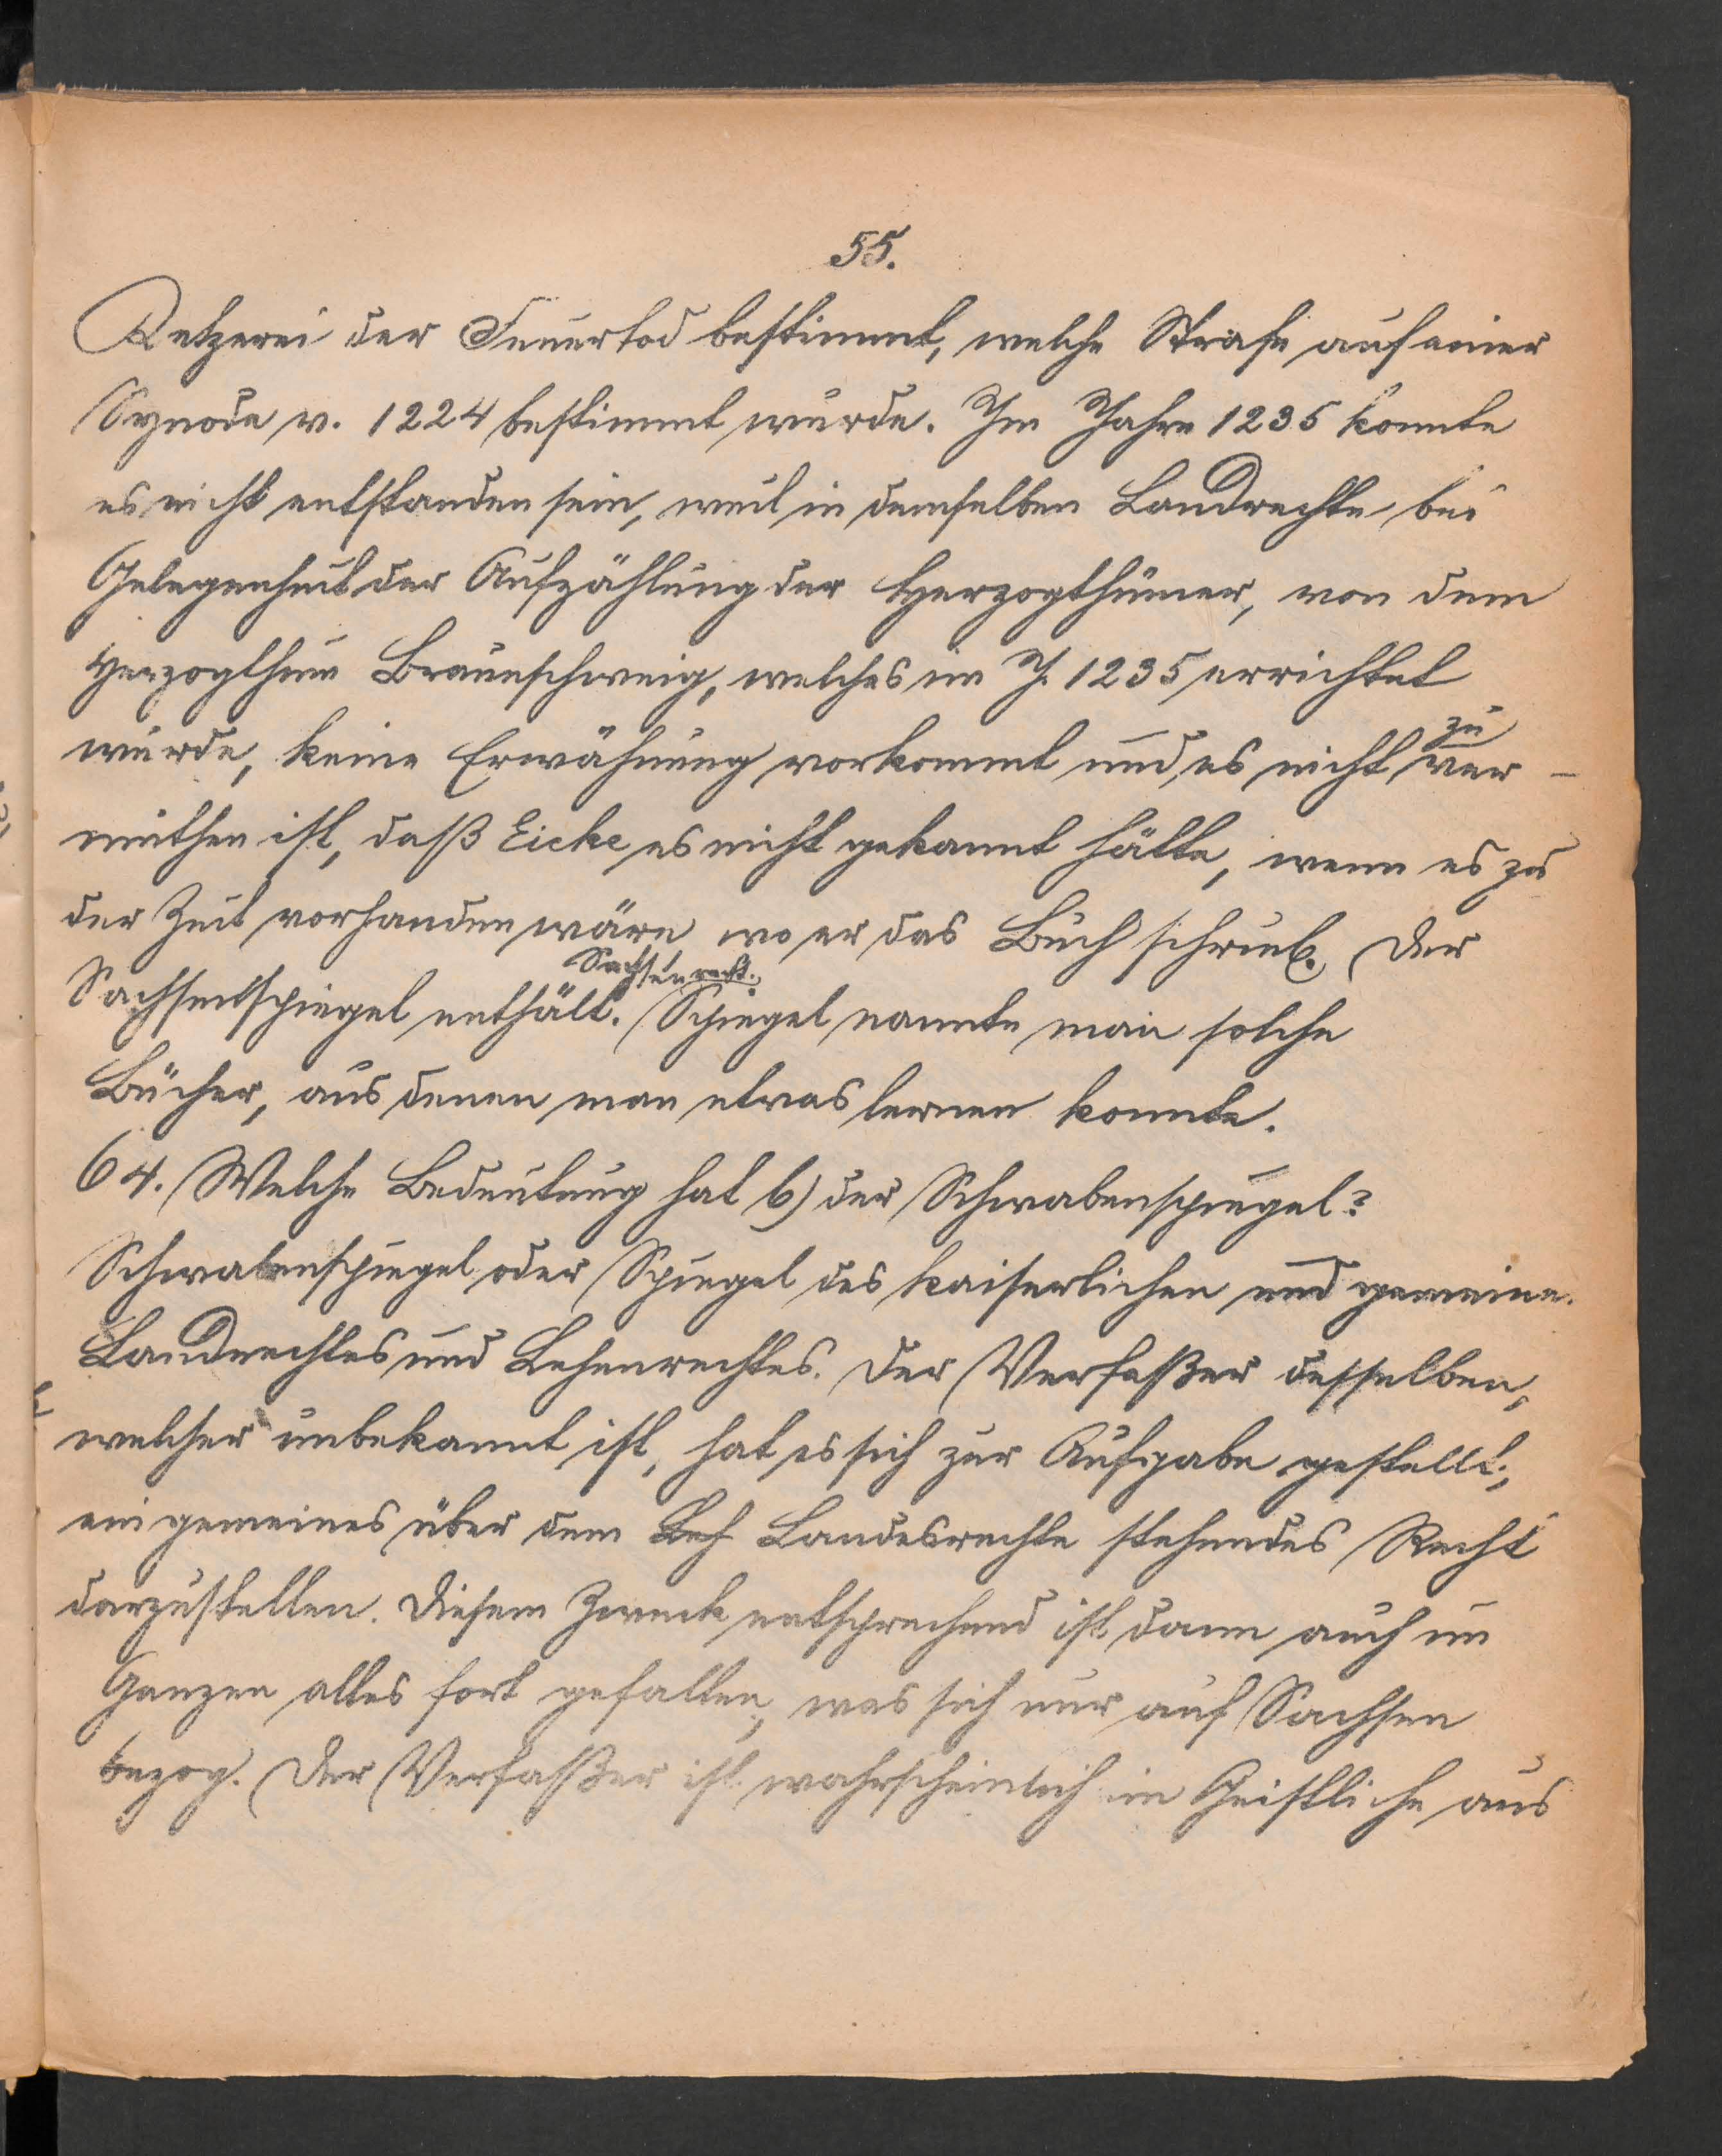 55.
Ketzerei der Feuertod bestimmt, welche Strafe auf einer
Synode v. 1224 bestimmt wurde. Im Jahre 1235 konnte
es nicht entstanden sein, weil in demselben Landrechte bei
Gelegenheit der Aufzählung der Herzogthümer, von dem
Herzogthum Braunschweig, welches im J. 1235 errichtet
wurde, keine Erwähnung vorkommt und es nicht zu ver-
muthen ist, daß Eicke es nicht gekannt hätte, wenn es zu
der Zeit vorhanden wäre wo er das Buch schrieb. Der
Sachsenspiegel enthält Sachsenrecht. Spiegel nannte man solche
Bücher, aus denen man etwas lernen konnte.
64. Welche Bedeutung hat b) der Schwabenspiegel?
Schwabenspiegel oder Spiegel des kaiserlichen und gemeine.
Landrechtes und Lehenrechtes. Der Verfaßer desselben,
welcher unbekannt ist, hat es sich zur Aufgabe gestellt,
ein gemeines über dem Leh Landesrechte stehendes Recht
darzustellen. Diesem Zweck entsprechend ist dann auch im
Ganzen alles fort gefallen, was sich nur auf Sachsen
bezog. Der Verfaßer ist wahrscheinlich ein Geistliche aus